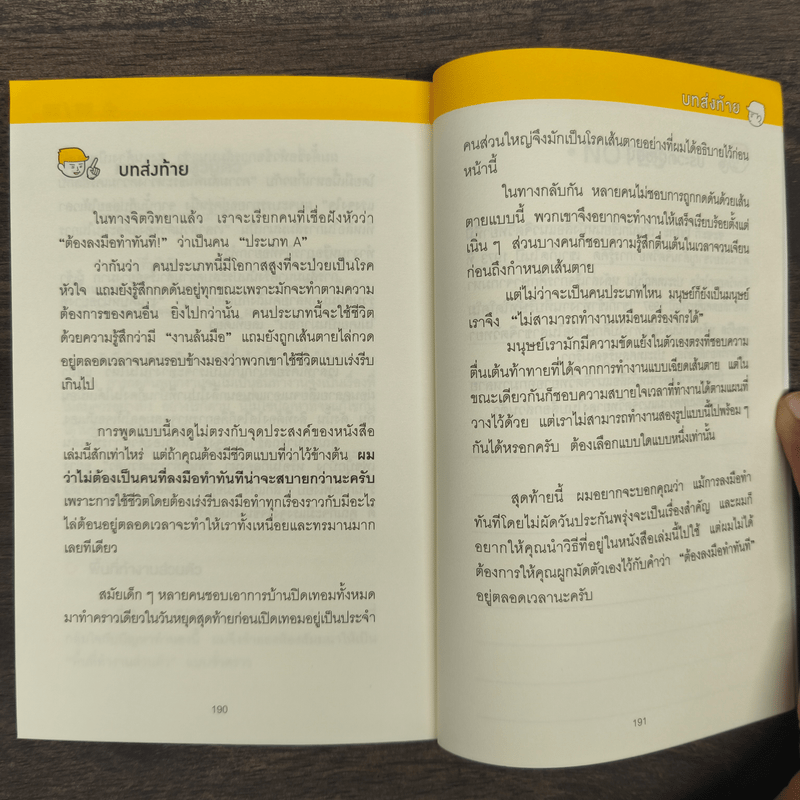 บทส่งท้าย
ในทางจิตวิทยาแล้ว เราจะเรียกคนที่เชื่อฝังหัวว่า
“ต้องลงมือทำทันที!” ว่าเป็นคน “ประเภท A”
ว่ากันว่า คนประเภทนี้มีโอกาสสูงที่จะป่วยเป็นโรค
หัวใจ แถมยังรู้สึกกดดันอยู่ทุกขณะเพราะมักจะทำตามความ
ต้องการของคนอื่น ยิ่งไปกว่านั้น คนประเภทนี้จะใช้ชีวิต
ด้วยความรู้สึกว่ามี “งานล้นมือ” แถมยังถูกเส้นตายไล่กวด
อยู่ตลอดเวลาจนคนรอบข้างมองว่าพวกเขาใช้ชีวิตแบบเร่งรีบ
เกินไป
การพูดแบบนี้คงดูไม่ตรงกับจุดประสงค์ของหนังสือ
เล่มนี้สักเท่าไหร่ แต่ถ้าคุณต้องมีชีวิตแบบที่ว่าไว้ข้างต้น ผม
ว่าไม่ต้องเป็นคนที่ลงมือทำทันทีน่าจะสบายกว่านะครับ
เพราะการใช้ชีวิตโดยต้องเร่งรีบลงมือทำทุกเรื่องราวกับมีอะไร
ไล่ต้อนอยู่ตลอดเวลาจะทำให้เราทั้งเหนื่อยและทรมานมาก
เลยทีเดียว
สมัยเด็ก ๆ หลายคนชอบเอาการบ้านปิดเทอมทั้งหมด
มาทำคราวเดียวในวันหยุดสุดท้ายก่อนเปิดเทอมอยู่เป็นประจำ
190
บทส่งท้าย
คนส่วนใหญ่จึงมักเป็นโรคเส้นตายอย่างที่ผมได้อธิบายไว้ก่อน
หน้านี้
ในทางกลับกัน หลายคนไม่ชอบการถูกกดดันด้วยเส้น
ตายแบบนี้ พวกเขาจึงอยากจะทำงานให้เสร็จเรียบร้อยตั้งแต่
เนิ่น ๆ ส่วนบางคนก็ชอบความรู้สึกตื่นเต้นในเวลาจวนเจียน
ก่อนถึงกำหนดเส้นตาย
แต่ไม่ว่าจะเป็นคนประเภทไหน มนุษย์ก็ยังเป็นมนุษย์
เราจึง “ไม่สามารถทำงานเหมือนเครื่องจักรได้”
มนุษย์เรามักมีความขัดแย้งในตัวเองตรงที่ชอบความ
ตื่นเต้นท้าทายที่ได้จากการทำงานแบบเฉียดเส้นตาย แต่ใน
ขณะเดียวกันก็ชอบความสบายใจเวลาที่ทำงานได้ตามแผนที่
วางไว้ด้วย แต่เราไม่สามารถทำงานสองรูปแบบนี้ไปพร้อม ๆ
กันได้หรอกครับ ต้องเลือกแบบใดแบบหนึ่งเท่านั้น
สุดท้ายนี้ ผมอยากจะบอกคุณว่า แม้การลงมือทำ
ทันทีโดยไม่ผัดวันประกันพรุ่งจะเป็นเรื่องสำคัญ และผมก็
อยากให้คุณนำวิธีที่อยู่ในหนังสือเล่มนี้ไปใช้ แต่ผมไม่ได้
ต้องการให้คุณผูกมัดตัวเองไว้กับคำว่า “ต้องลงมือทำทันที”
อยู่ตลอดเวลานะครับ
191